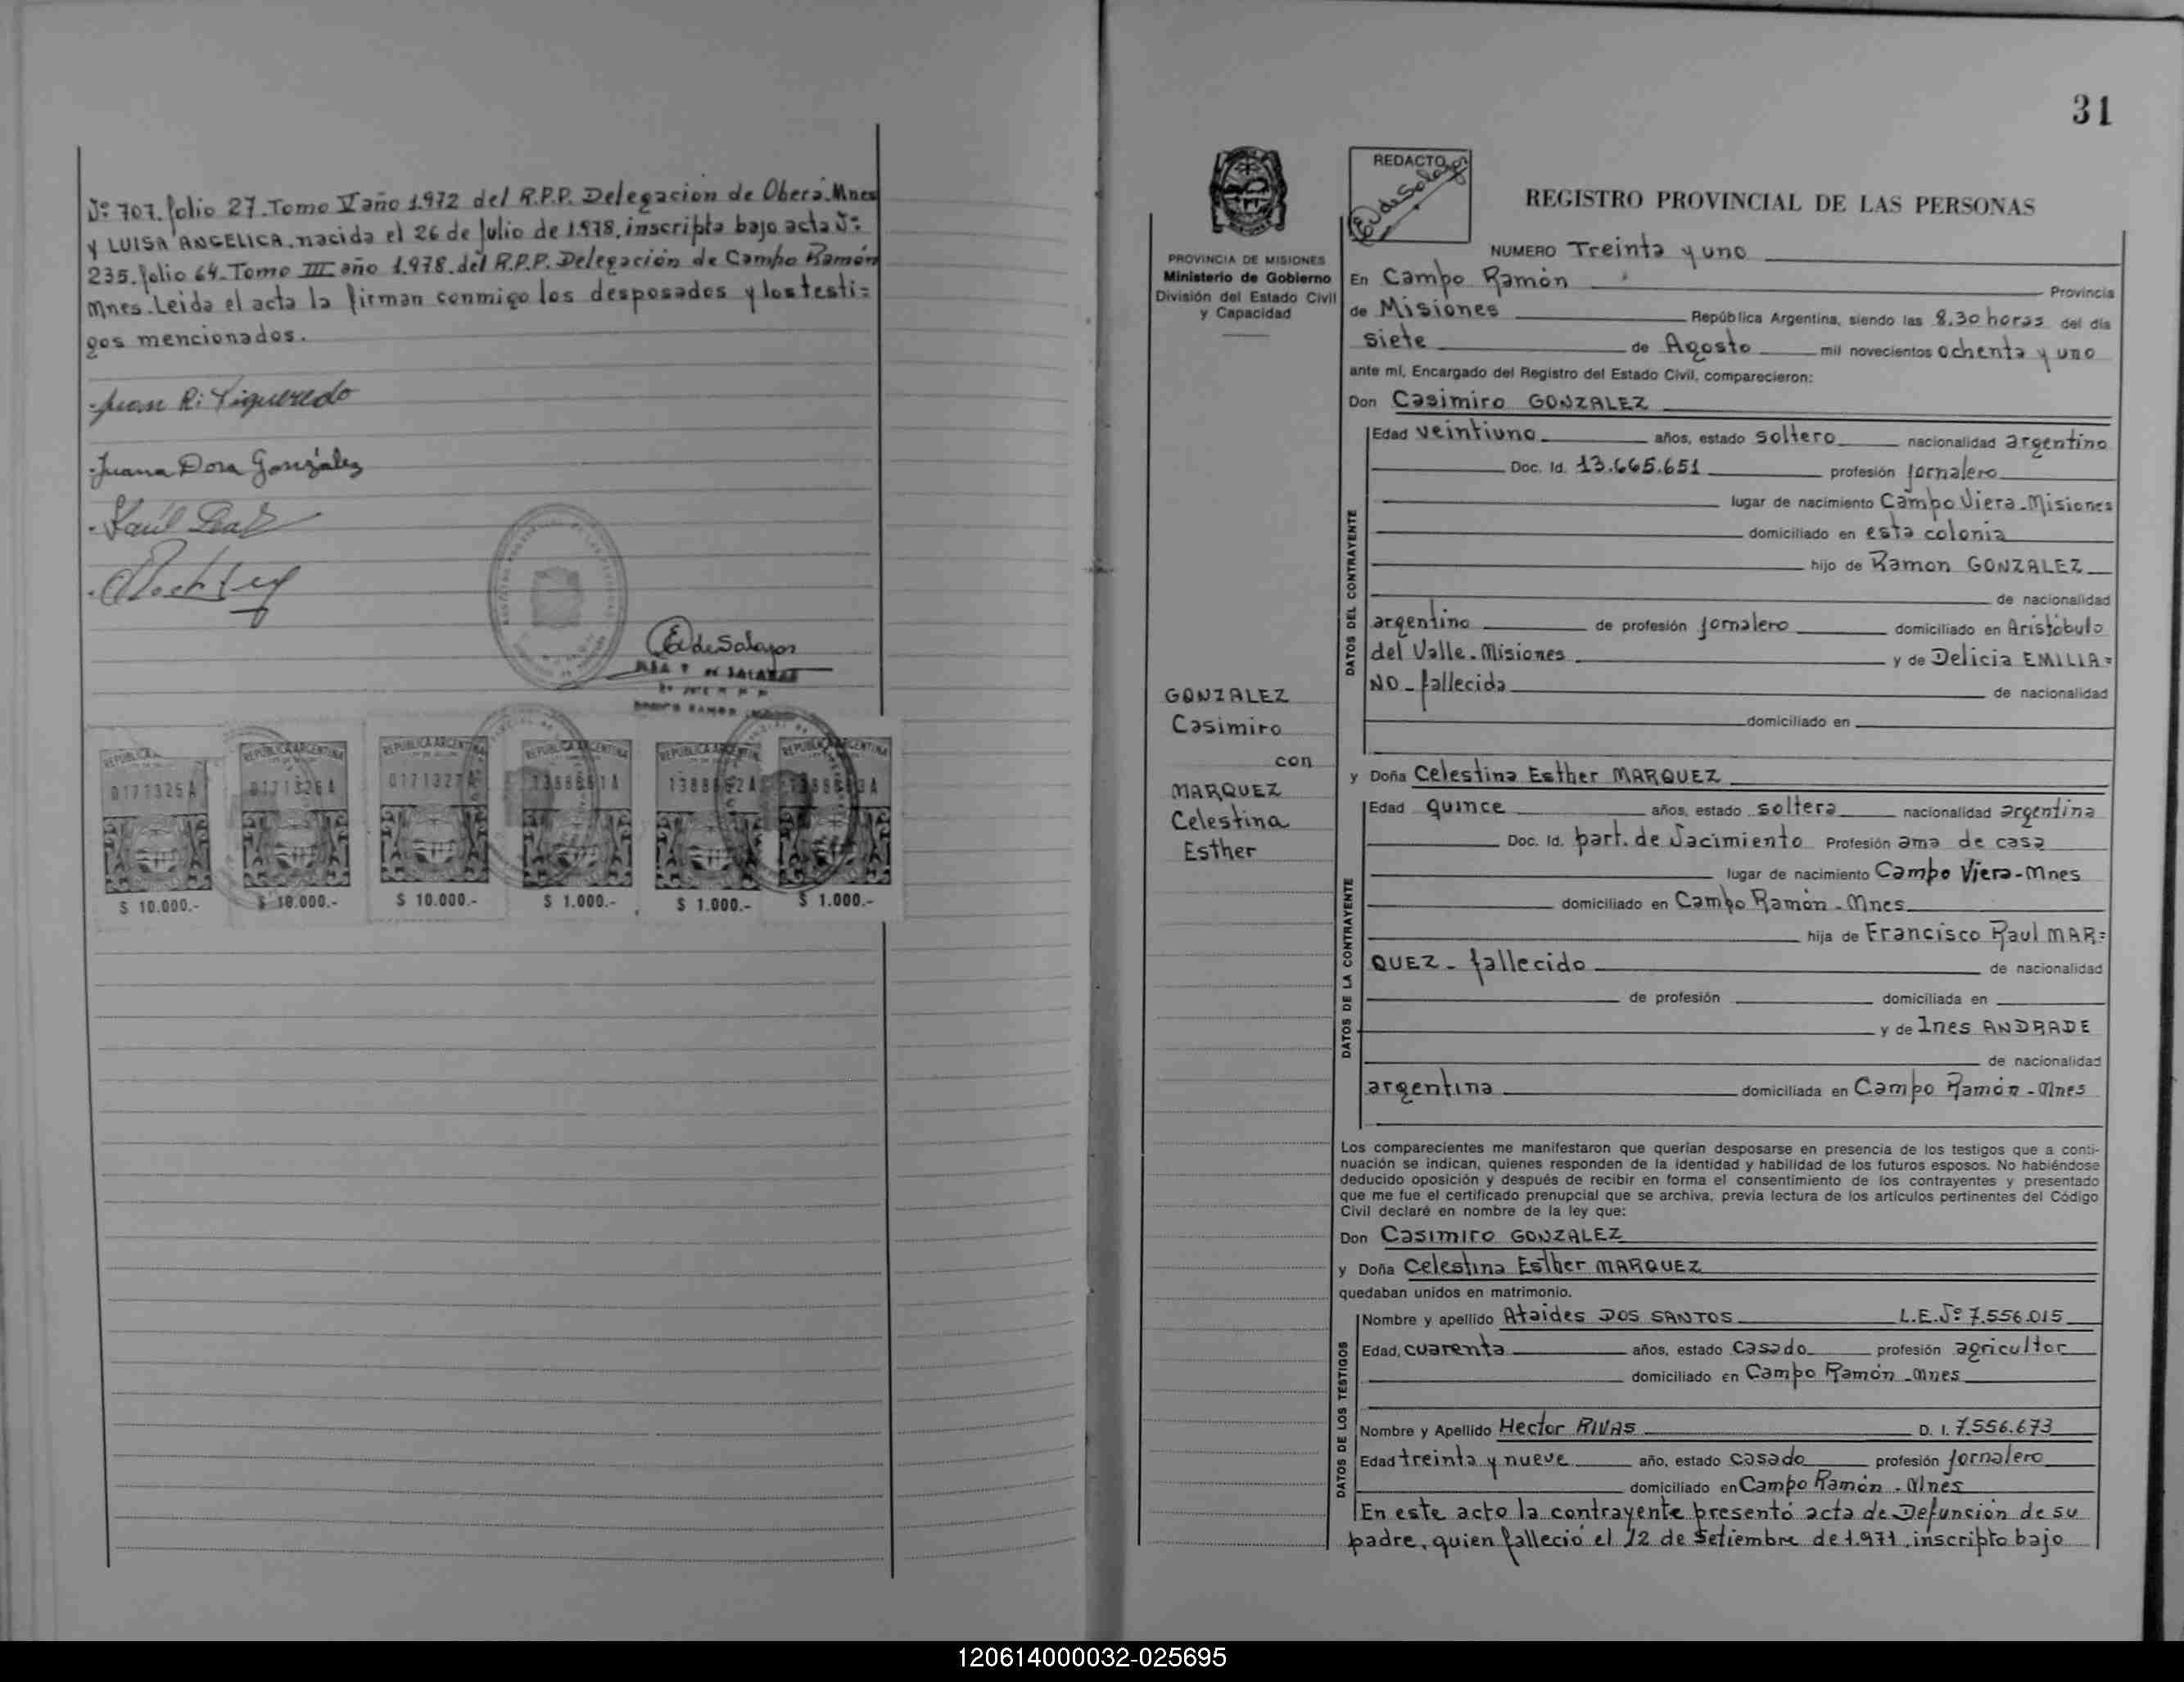 Nº 707. folio 27. Tomo V año 1.972 del R.P.P. Delegación de Oberá. Mnes
y LUISA ANGELICA. nacida el 26 de Julio de 1.978. inscripta bajo acta Nº
235. folio 64. Tomo III año 1.978. del R.P.P. Delegación de Campo Ramón
Mnes. Leida el acta la firman conmigo los desposados y los testi=
gos mencionados.
Juan R. Figueredo
Juana Dora González
Raúl
EdeSalazar
DE SALAZAR
REPUBLICA
REPUBLICA ARGENTINA
REPUBLICA ARGENTINA
REPUBLICA ARGENTINA
REPUBLICA ARGENTINA
REPUBLICA ARGENTINA
0171325A
0171326A
0171327A
$ 10.000.-
$ 10.000.-
$ 10.000.-
$ 1.000.-
$ 1.000.-
$ 1.000.-
31
PROVINCIA DE MISIONES
Ministerio de Gobierno
División del Estado Civil
y Capacidad
GONZALEZ
Casimiro
con
MARQUEZ
Celestina
Esther
REDACTO
REGISTRO PROVINCIAL DE LAS PERSONAS
NUMERO Treinta y uno
En Campo Ramón Provincia
de Misiones República Argentina, siendo las 8,30 horas del día
siete de Agosto mil novecientos ochenta y uno
ante mí, Encargado del Registro del Estado Civil, comparecieron:
Don Casimiro GONZALEZ
DATOS DEL CONTRAYENTE
Edad veintiuno años, estado soltero nacionalidad argentino
Doc. Id. 13.665.651 profesión jornalero
lugar de nacimiento Campo Viera-Misiones
domiciliado en esta colonia
hijo de Ramon GONZALEZ
de nacionalidad
argentino de profesión jornalero domiciliado en Aristóbulo
del Valle. Misiones y de Delicia EMILIA=
NO - fallecida de nacionalidad
domiciliado en
y Doña Celestina Esther MARQUEZ
DATOS DE LA CONTRAYENTE
Edad quince años, estado soltera nacionalidad argentina
Doc. Id. part. de Nacimiento Profesión ama de casa
lugar de nacimiento Campo Viera-Mnes
domiciliado en Campo Ramón - Mnes
hija de Francisco Raul MAR=
QUEZ - fallecido de nacionalidad
de profesión domiciliada en
y de Ines ANDRADE
de nacionalidad
argentina domiciliada en Campo Ramón - Mnes
Los comparecientes me manifestaron que querían desposarse en presencia de los testigos que a conti-
nuación se indican, quienes responden de la identidad y habilidad de los futuros esposos. No habiéndose
deducido oposición y después de recibir en forma el consentimiento de los contrayentes y presentado
que me fue el certificado prenupcial que se archiva, previa lectura de los artículos pertinentes del Código
Civil declaré en nombre de la ley que:
Don Casimiro GONZALEZ
y Doña Celestina Esther MARQUEZ
quedaban unidos en matrimonio.
DATOS DE LOS TESTIGOS
Nombre y apellido Ataides DOS SANTOS L.E. Nº 7.556.015
Edad, cuarenta años, estado casado profesión agricultor
domiciliado en Campo Ramón - Mnes
Nombre y Apellido Hector RIVAS D. I. 7.556.673
Edad treinta y nueve año, estado casado profesión jornalero
domiciliado en Campo Ramón - Mnes
En este acto la contrayente presentó acta de Defunción de su
padre, quien falleció el 12 de Setiembre de 1.971, inscripto bajo
120614000032-025695